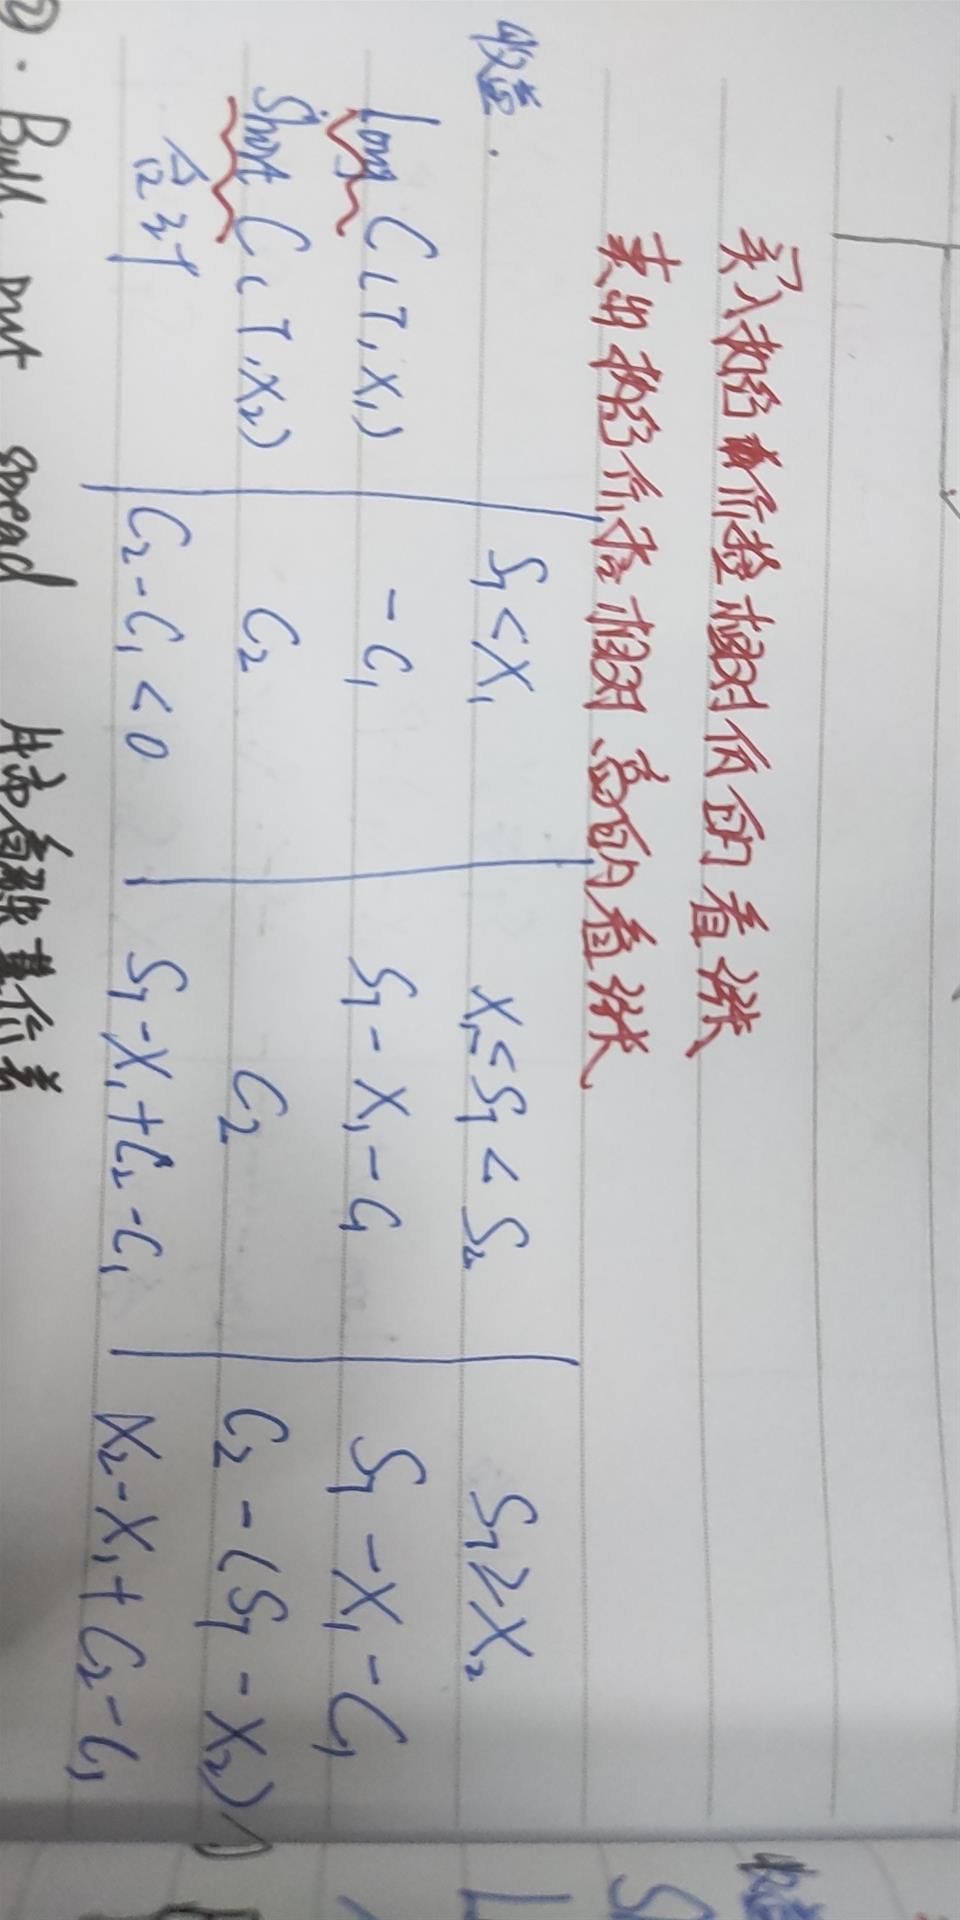 买入执行价格相对低的看涨
卖出执行价格相对高的看涨
收益. S_T < X₁ X₁ ≤ S_T < S₂ S_T ≥ X₂
Long C(T, X₁) - C₁ S_T - X₁ - C₁ S_T - X₁ - C₁
Short C(T, X₂) C₂ C₂ C₂ - (S_T - X₂)
合计 C₂ - C₁ < 0 S_T - X₁ + C₂ - C₁ X₂ - X₁ + C₂ - C₁
②. Bull put spread 牛市看跌差价
收益
S
L